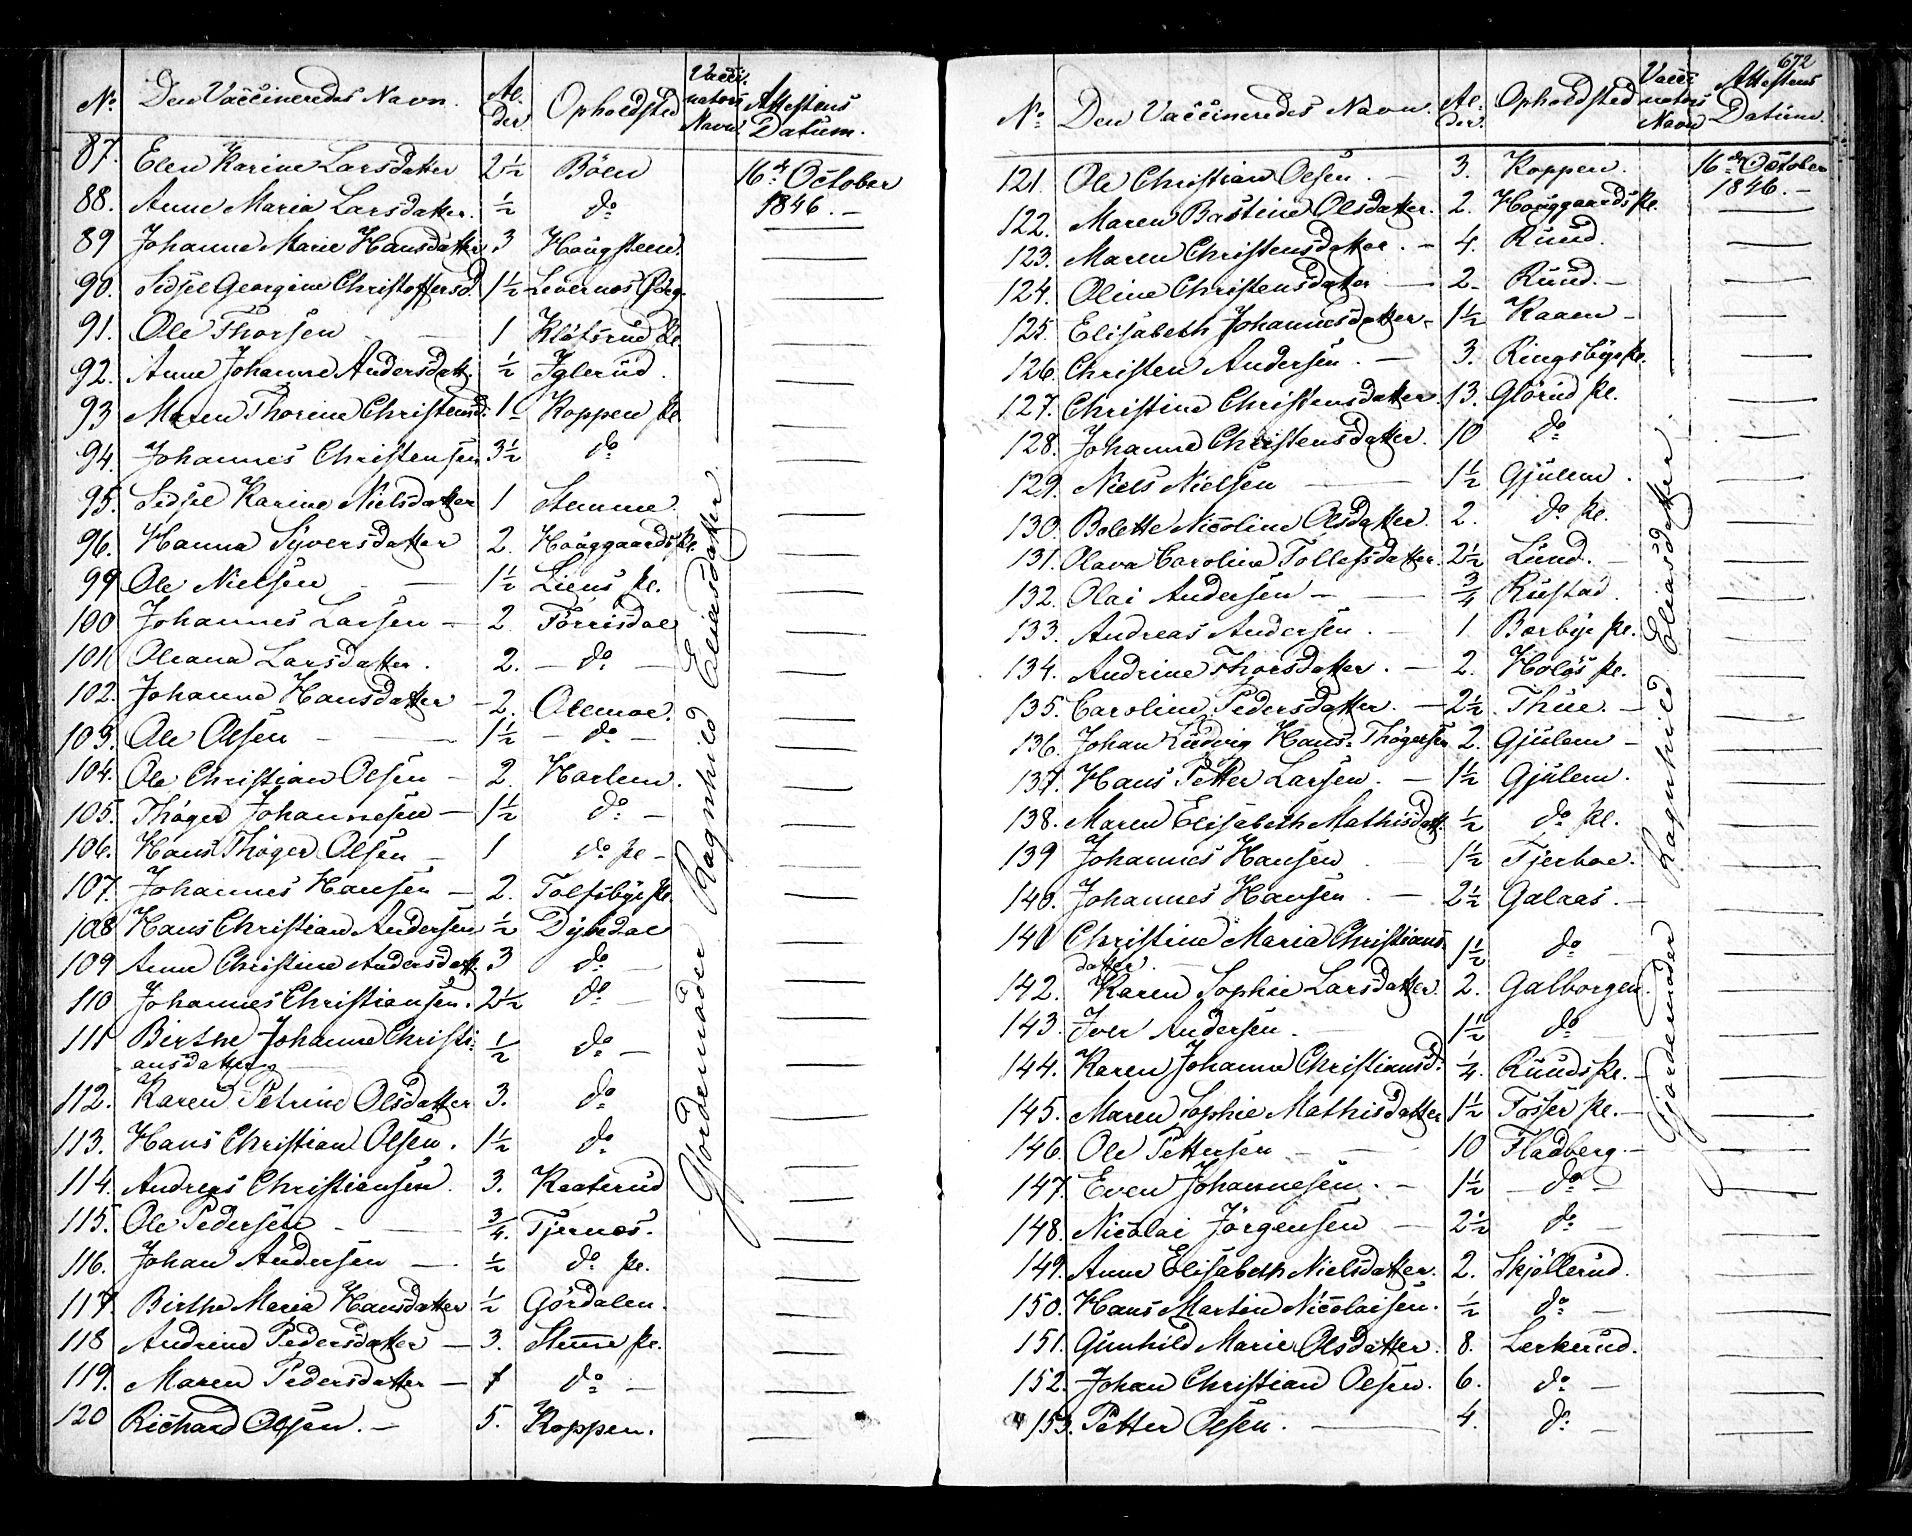 No. Den Vaccineredes Navn. Alder Opholdsted Vaccinators Navn Attestens Datum.
87. Elen Karine Larsdatter 2½ Böen 16de October
88. Anne Maria Larsdatter. ½ do 1846. —
89 Johanne Marie Hansdatter 3 Hougsteen. —
90. Sidsel Georgine Christoffersd. 1½ —
91. Ole Thorsen — 1 Klöfsrud Pl. —
92. Anne Johanne Andersdatt. ½ Iglerud. —
93 Maren Thorine Christensd. 1½ Koppen Pl. —
94. Johannes Christensen 3½ do —
95. Sidsel Karine Nielsdatter 1 Stemme. —
96. Hanna Syversdatter 2. Houggaards Pl. —
99 Ole Nielsen — 1½ Liens Pl. —
100 Johannes Larsen — 2 Torrisdal —
101. Oleana Larsdatter. 2. — do — —
102. Johanne Hansdatter — 2. Olemoe. —
103. Ole Olsen — 1½ — do — —
104. Ole Christian Olsen — 2. Harlem. —
105. Thöger Johannesen — 1½ do — —
106. Hans Thöger Olsen — 1 do Pl — —
107. Johannes Hansen — 2. Tolfsbye Pl. —
108 Hans Christian Andersen ½ Dybedal —
109 Anne Christine Andersdatt. 3 do — —
110 Johannes Christiansen. 2½ do — —
111 Birthe Johanne Christi-
ansdatter ½ do — —
112. Karen Petrine Olsdatter 3. do —
113. Hans Christian Olsen. 1½ do —
114. Andreas Christiansen. 3. Kaaterud —
115. Ole Pedersen — ¾. Tjernæs. —
116. Johan Andersen — ½ do Pl. —
117. Birthe Maria Hansdatter ½ Gördalen. —
118 Andrine Pedersdatter — 3. Stemme Pl. —
119. Maren Pedersdatter — 1 do — —
120 Richard Olsen. — 5. Koppen. —
Gjordemoder Ragnhild Eliasdatter
672
No. Den Vaccineredes Navn. Alder. Opholdsted Vaccinators Navn Attestens Datum.
121. Ole Christian Olsen. — 3. Koppen. 16de October
1846. —
122. Maren Bastine Olsdatter. 2. Houggaards Pl. —
123. Maren Christensdatter. — 4. Ruud. —
124. Oline Christensdatter — 2. Ruud. — —
125. Elisabeth Johannesdatter — 1½ Kaaen — —
126. Christen Andersen. — 3. Ringsbye Pl. —
127. Christine Christensdatter. 13. Glörud Pl. —
128. Johanne Christensdatter. 10 do —
129. Niels Nielsen — 1½ Gjulem. —
130. Bolette Nicoline Olsdatter. 2. do Pl. —
131. Olava Caroline Tollefsdatter. 2½ Lund. — —
132. Olai Andersen — ¾ Rustad. —
133. Andreas Andersen. — 1. Borbye Pl. —
134. Andrine Thorsdatter. — 2. Holös Pl. —
135. Caroline Pedersdatter. — 2½ Thue. — —
136. Johan Ludvig Hans-Thögersen 2. Gjulem — —
137. Hans Petter Larsen. — 1½ Gjulem. —
138. Maren Elisabeth Mathisdatt. ½ do Pl. —
139 Johannes Hansen 1½ Tjerboe. —
140. Johannes Hansen. — 2½ Galaas. — —
141 Christine Maria Christians
datter. — 1½ do — —
142. Karen Sophie Larsdatter. 2. Galborgen. —
143. Iver Andersen. — 1½ do —
144. Karen Johanne Christiansd. ¼. Ruuds Pl. — —
145. Maren Sophie Mathisdatter 1½ Tosser Pl. — —
146. Ole Pettersen — 10 Fladberg. — —
147. Even Johannesen. — 1½ — do — —
148. Nicolai Jörgensen — 2½ do — —
149. Anne Elisabeth Nielsdatter. 2. Skjöllerud. —
150. Hans Martin Nicolaisen. ½ do — —
151. Gunhild Marie Olsdatter. 8. Lerkerud. —
152. Johan Christian Olsen. 6. do — —
153. Petter Olsen. — 4. do — —
Gjordemoder Ragnhild Eliasdatter.